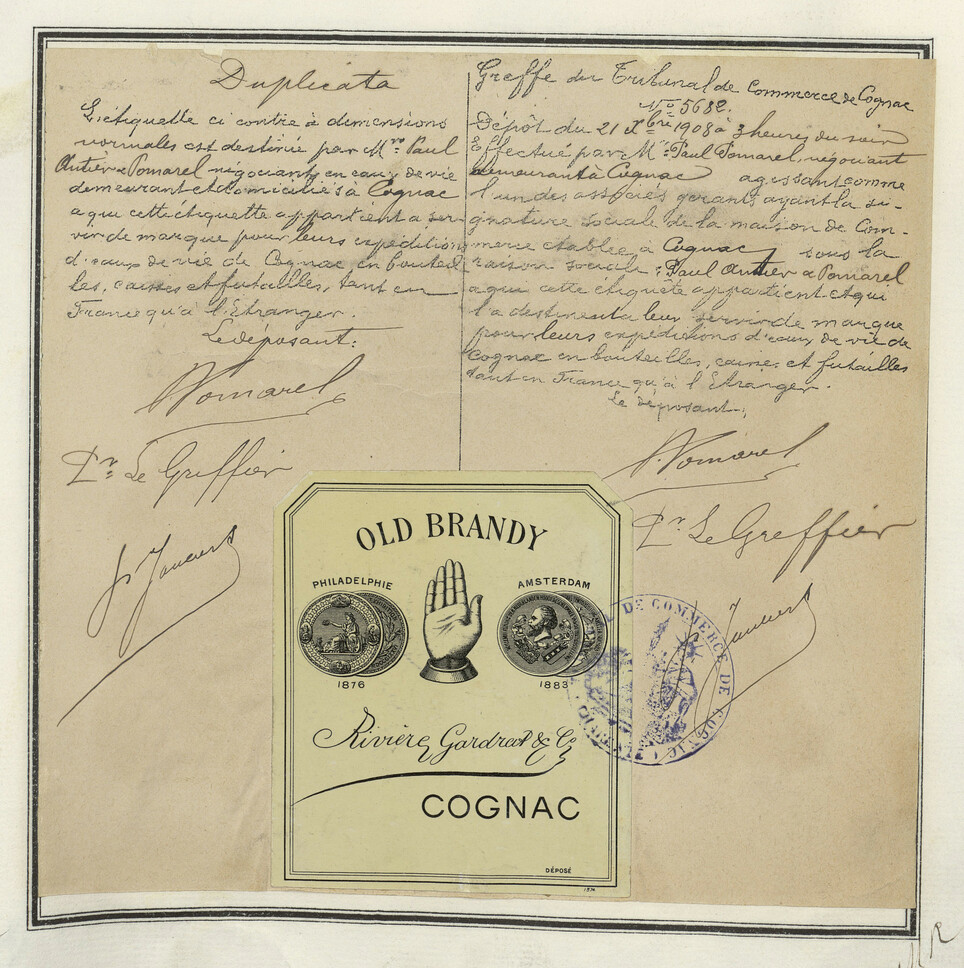 Duplicata
L'étiquette ci contre à dimensions
normales est destinée par Mrs Paul
Antier & Pomarel négociants en eaux de vie
demeurant et domiciliés à Cognac
a qui cette étiquette appartient a ser-
vir de marque pour leurs expéditions
d'eaux de vie de Cognac, en bouteil
les, caisses et futailles, tant en
France qu'à l'Etranger.
Le déposant:
P. Pomarel
Pr Le Greffier
Greffe du Tribunal de Commerce de Cognac
No 5682.
Dépôt du 21 Xbre 1908 à 3 heures du soir
Effectué par Mr Paul Pomarel, négociant
demeurant à Cognac agissant comme
l'un des associés gérants, ayant la si-
gnature sociale de la maison de Com-
merce établie à Cognac sous la
raison sociale: Paul Antier & Pomarel
a qui cette étiquète appartient et qui
l'a destinent a leur servir de marque
pour leurs expéditions d'eaux de vie de
Cognac en bouteilles, caisses et futailles
tant en France qu'à l'Etranger.
Le déposant:
P. Pomarel
Pr Le Greffier
OLD BRANDY
PHILADELPHIE
AMSTERDAM
1876
1883
Rivière Gardrat & Co
COGNAC
DÉPOSÉ
DE COMMERCE DE COGNAC